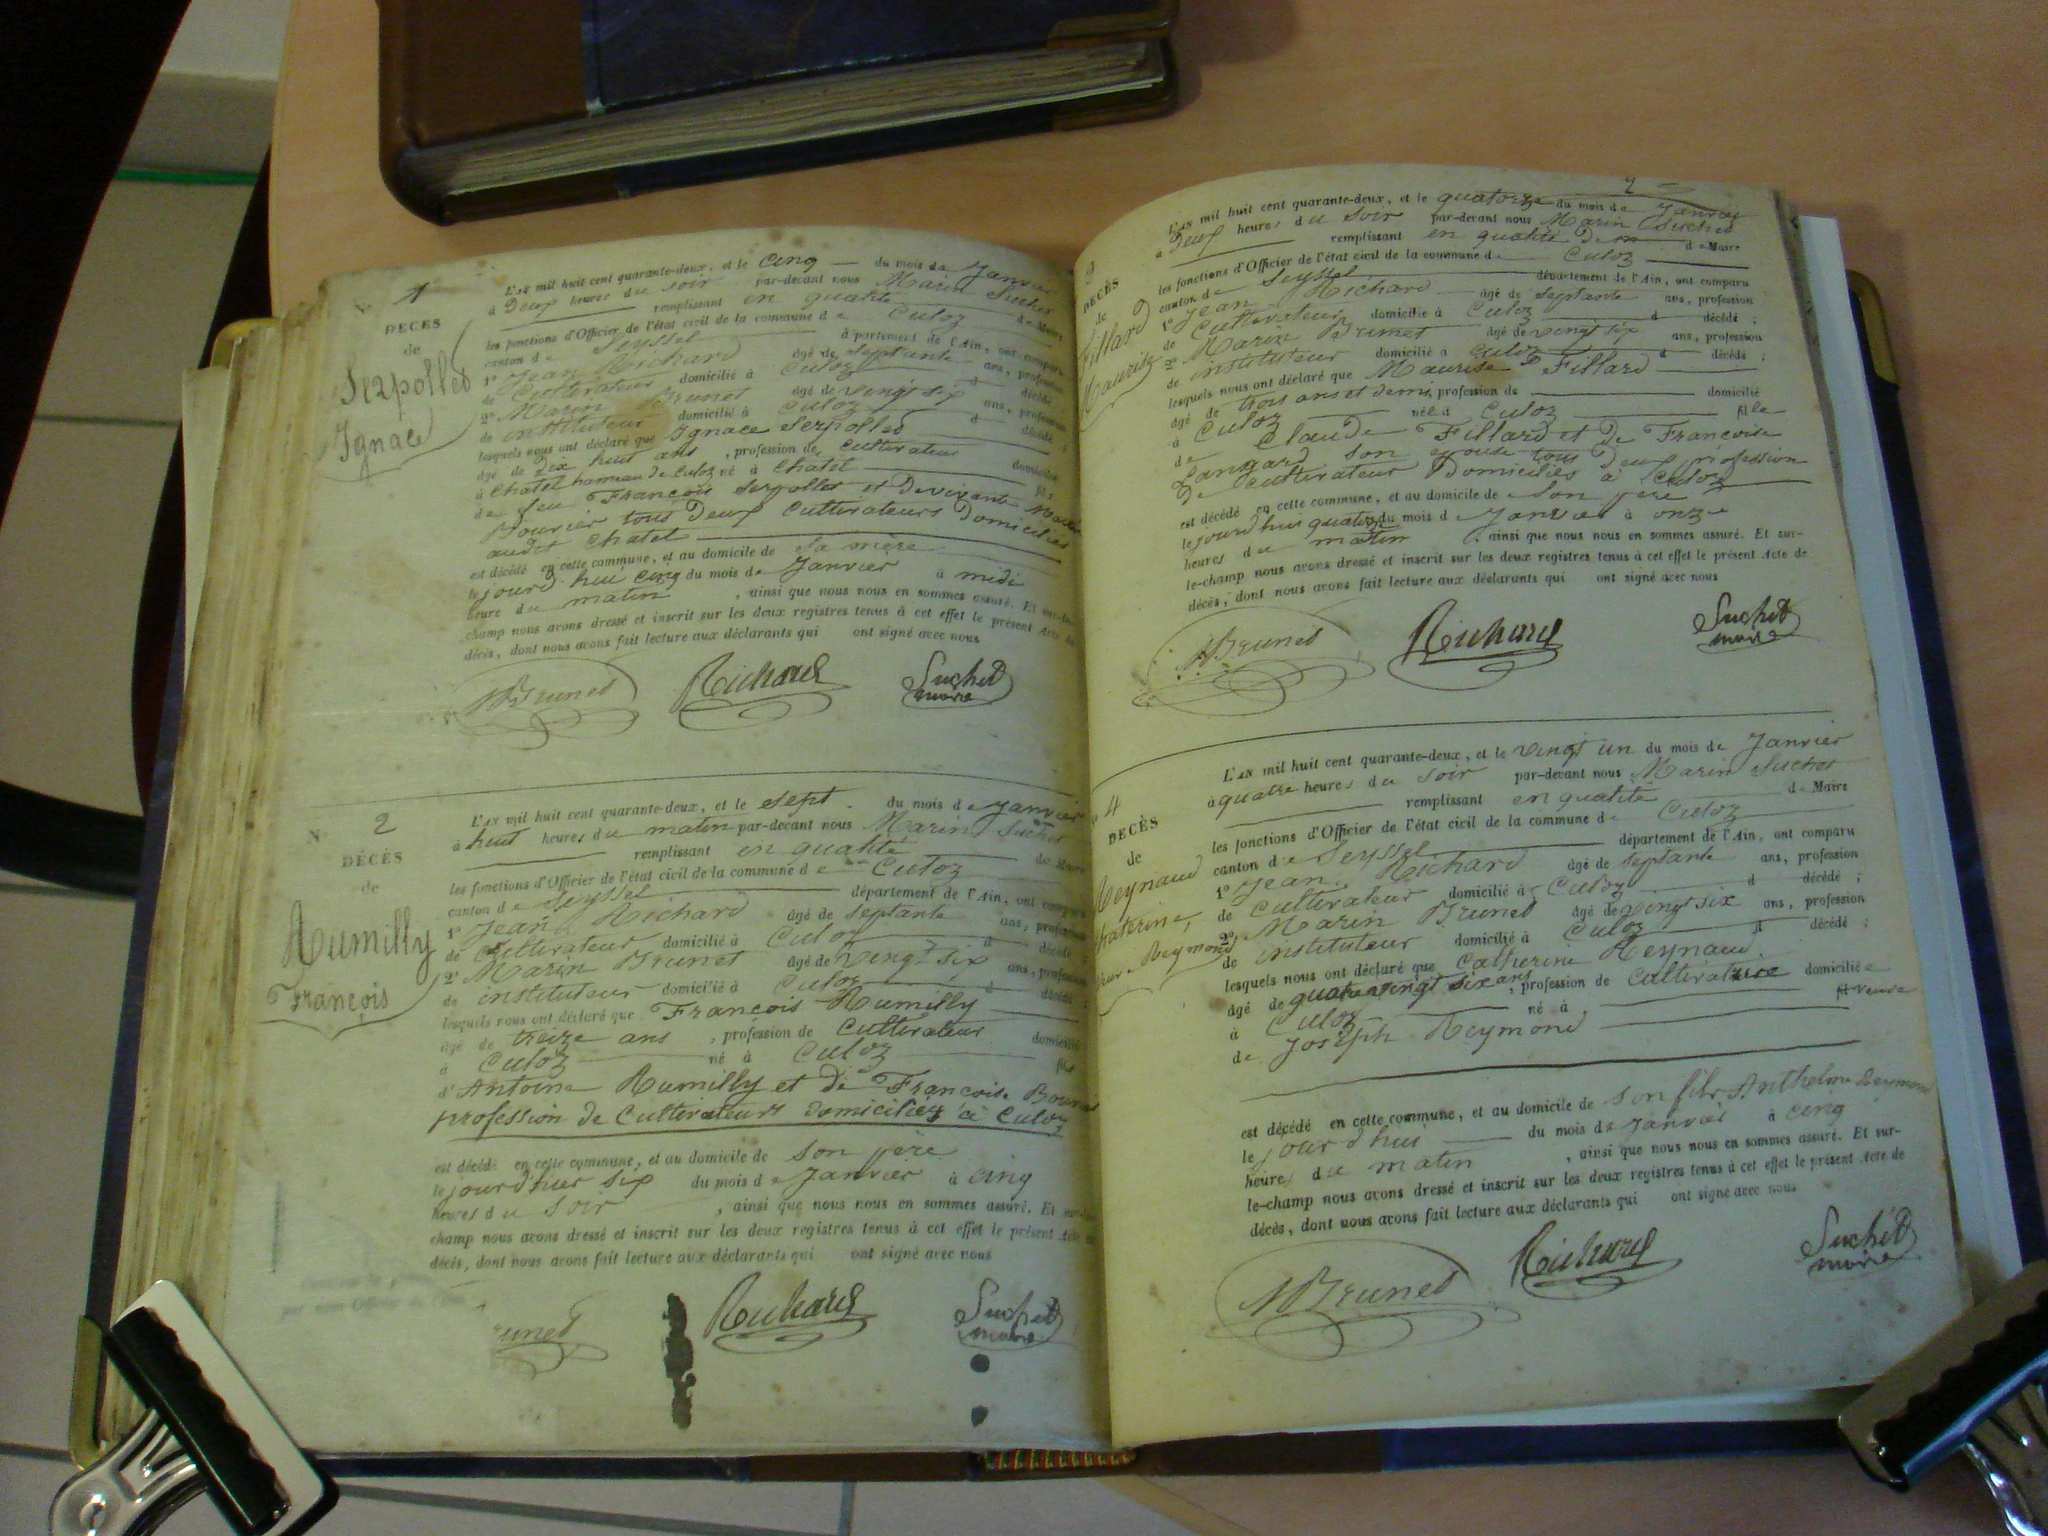 N° 1
DÉCÈS
de
Serpollet
Ignace
L'AN mil huit cent quarante-deux, et le cinq du mois de Janvier
à Deux heures du soir par-devant nous Marin Suchet
remplissant en qualité de Maire
les fonctions d'Officier de l'état civil de la commune de Culoz
canton de Seyssel département de l'Ain, ont comparu
1° Jean Richard âgé de septante ans, profession
de Cultivateur domicilié à Culoz d décédé ;
2° Marin Brunet âgé de vingt six ans, profession
de instituteur domicilié à Culoz d décédé ;
lesquels nous ont déclaré que Ignace Serpollet
âgé de dix huit ans , profession de cultivateur domicilié
à Chatel hameau de Culoz né à Chatel fils
de feu François Serpollet et De vivante
Bouvier tous Deux cultivateurs Domiciliés
audit Chatel
est décédé en cette commune, et au domicile de sa mère
le jourd'hui cinq du mois de Janvier à midi
heure du matin , ainsi que nous nous en sommes assuré. Et sur-le-
champ nous avons dressé et inscrit sur les deux registres tenus à cet effet le présent Acte de
décès, dont nous avons fait lecture aux déclarants qui ont signé avec nous
MBrunet Richard Suchet
maire
N° 2
DÉCÈS
de
Rumilly
François
L'AN mil huit cent quarante-deux, et le sept du mois de Janvier
à huit heures du matin par-devant nous Marin Suchet
remplissant en qualité de Maire
les fonctions d'Officier de l'état civil de la commune de Culoz
canton de Seyssel département de l'Ain, ont comparu
1° Jean Richard âgé de septante ans, profession
de Cultivateur domicilié à Culoz d décédé ;
2° Marin Brunet âgé de vingt six ans, profession
de instituteur domicilié à Culoz d décédé ;
lesquels nous ont déclaré que François Rumilly
âgé de treize ans , profession de Cultivateur domicilié
à Culoz né à Culoz fils
d'Antoine Rumilly et de Françoise
profession de Cultivateurs domiciliés à Culoz
est décédé en cette commune, et au domicile de son père
le jourd'hier six du mois de Janvier à cinq
heures du soir , ainsi que nous nous en sommes assuré. Et sur-le-
champ nous avons dressé et inscrit sur les deux registres tenus à cet effet le présent Acte de
décès, dont nous avons fait lecture aux déclarants qui ont signé avec nous
runet Richard Suchet
maire
2
3
DÉCÈS
de
Fillard
Maurize
L'AN mil huit cent quarante-deux, et le quatorze du mois de Janvier
à Deux heures du soir par-devant nous Marin Suchet
remplissant en qualité de de Maire
les fonctions d'Officier de l'état civil de la commune de Culoz
canton de Seyssel département de l'Ain, ont comparu
1° Jean Richard âgé de septante ans, profession
de Cultivateur domicilié à Culoz d décédé ;
2° Marin Brunet âgé de vingt six ans, profession
de instituteur domicilié à Culoz d décédé ;
lesquels nous ont déclaré que Maurise Fillard
âgé de trois ans et demi, profession de domicilié
à Culoz née à Culoz fille
de Claude Fillard et de Françoise
Langard son epouse tous Deux profession
De Cultivateur Domiciliés à Culoz
est décédé en cette commune, et au domicile de son père
le jourd'hui quatorze du mois de Janvier à onze
heures du matin , ainsi que nous nous en sommes assuré. Et sur-
le-champ nous avons dressé et inscrit sur les deux registres tenus à cet effet le présent Acte de
décès, dont nous avons fait lecture aux déclarants qui ont signé avec nous
MBrunet Richard Suchet
maire
N° 4
DÉCÈS
de
Reynaud
Catherine,
Reymond
L'AN mil huit cent quarante-deux, et le vingt un du mois de Janvier
à quatre heures du soir par-devant nous Marin Suchet
remplissant en qualité de Maire
les fonctions d'Officier de l'état civil de la commune de Culoz
canton de Seyssel département de l'Ain, ont comparu
1° Jean Richard âgé de septante ans, profession
de cultivateur domicilié à Culoz d décédé ;
2° Marin Brunet âgé de vingt six ans, profession
de instituteur domicilié à Culoz d décédé ;
lesquels nous ont déclaré que Catherine Reynaud
âgé de quatre vingt six ans , profession de cultivatrice domiciliée
à Culoz né à fil veuve
de Joseph Reymond
est décédé en cette commune, et au domicile de son fils Anthelme Reymond
le jourd'hui du mois de Janvier à cinq
heures du matin , ainsi que nous nous en sommes assuré. Et sur-
le-champ nous avons dressé et inscrit sur les deux registres tenus à cet effet le présent Acte de
décès, dont nous avons fait lecture aux déclarants qui ont signé avec nous
MBrunet Richard Suchet
maire